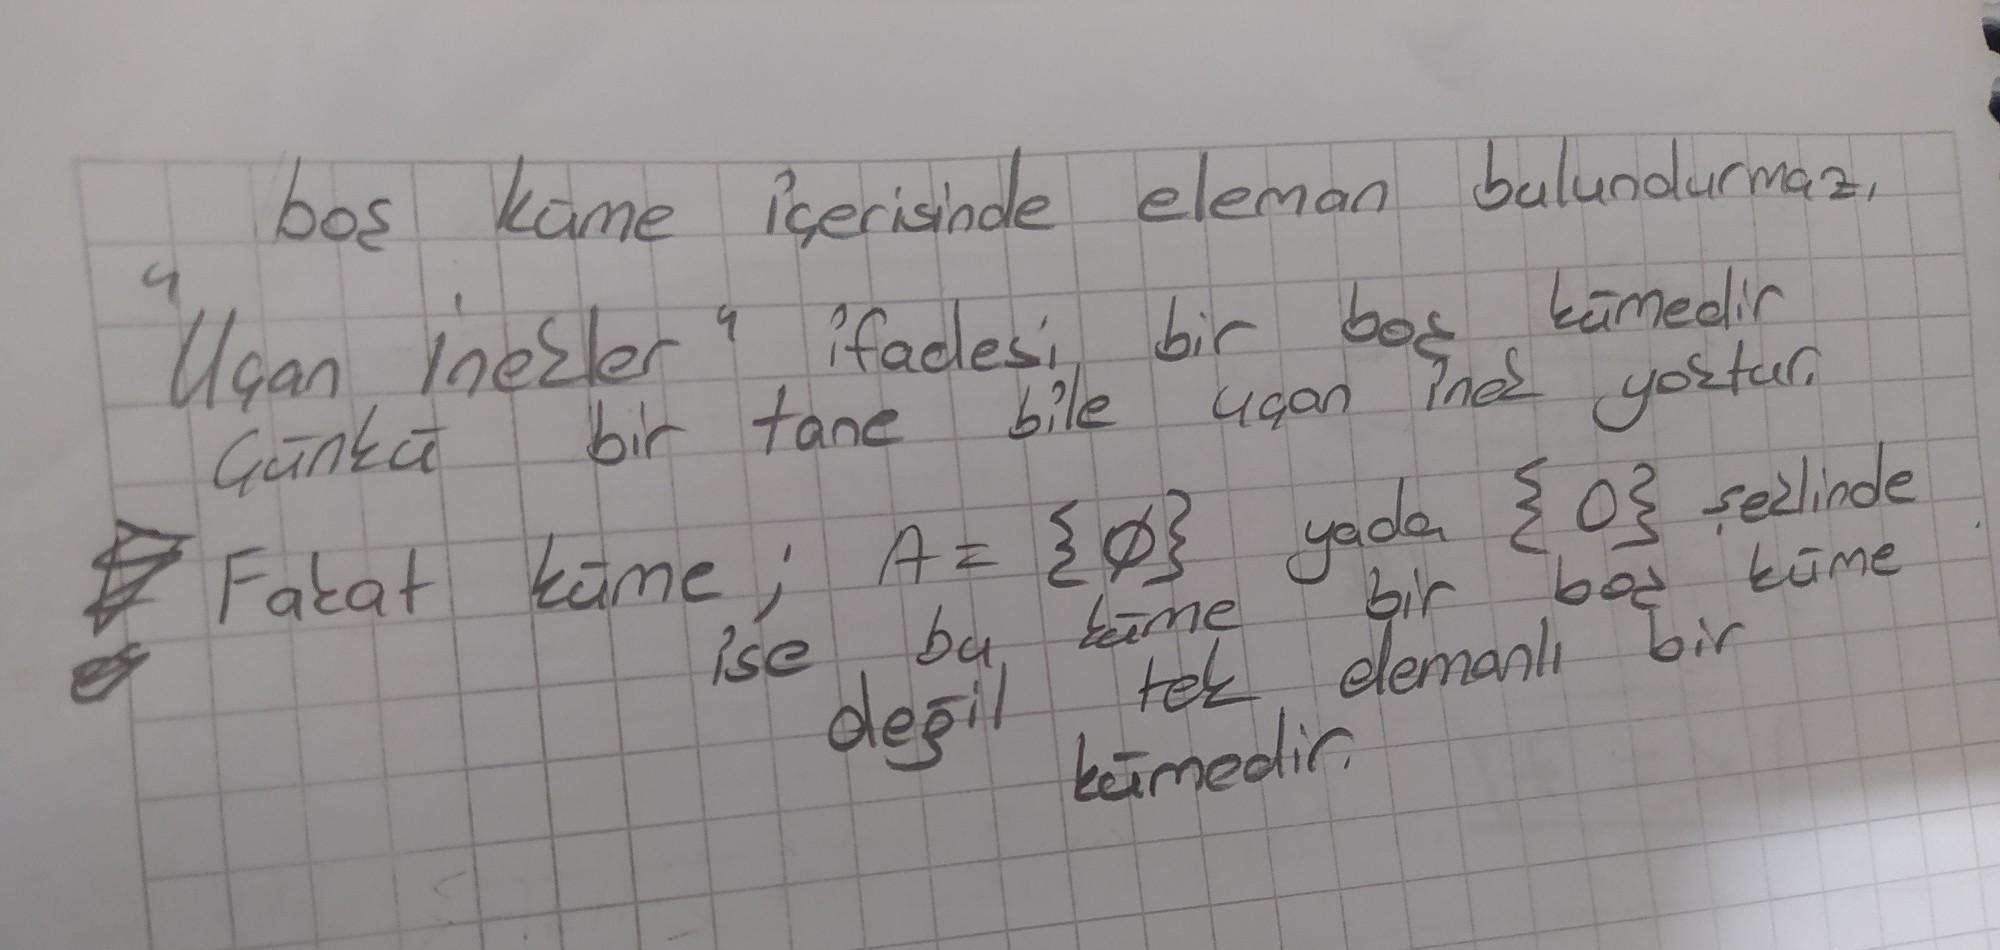 boş küme içerisinde eleman bulundurmaz.
"Uçan inekler" ifadesi bir boş kümedir
Çünkü bir tane bile uçan inek yoktur.
Fakat küme; A = {Ø} yada {0} şeklinde
ise bu küme bir boş küme
değil tek elemanlı bir
kümedir.